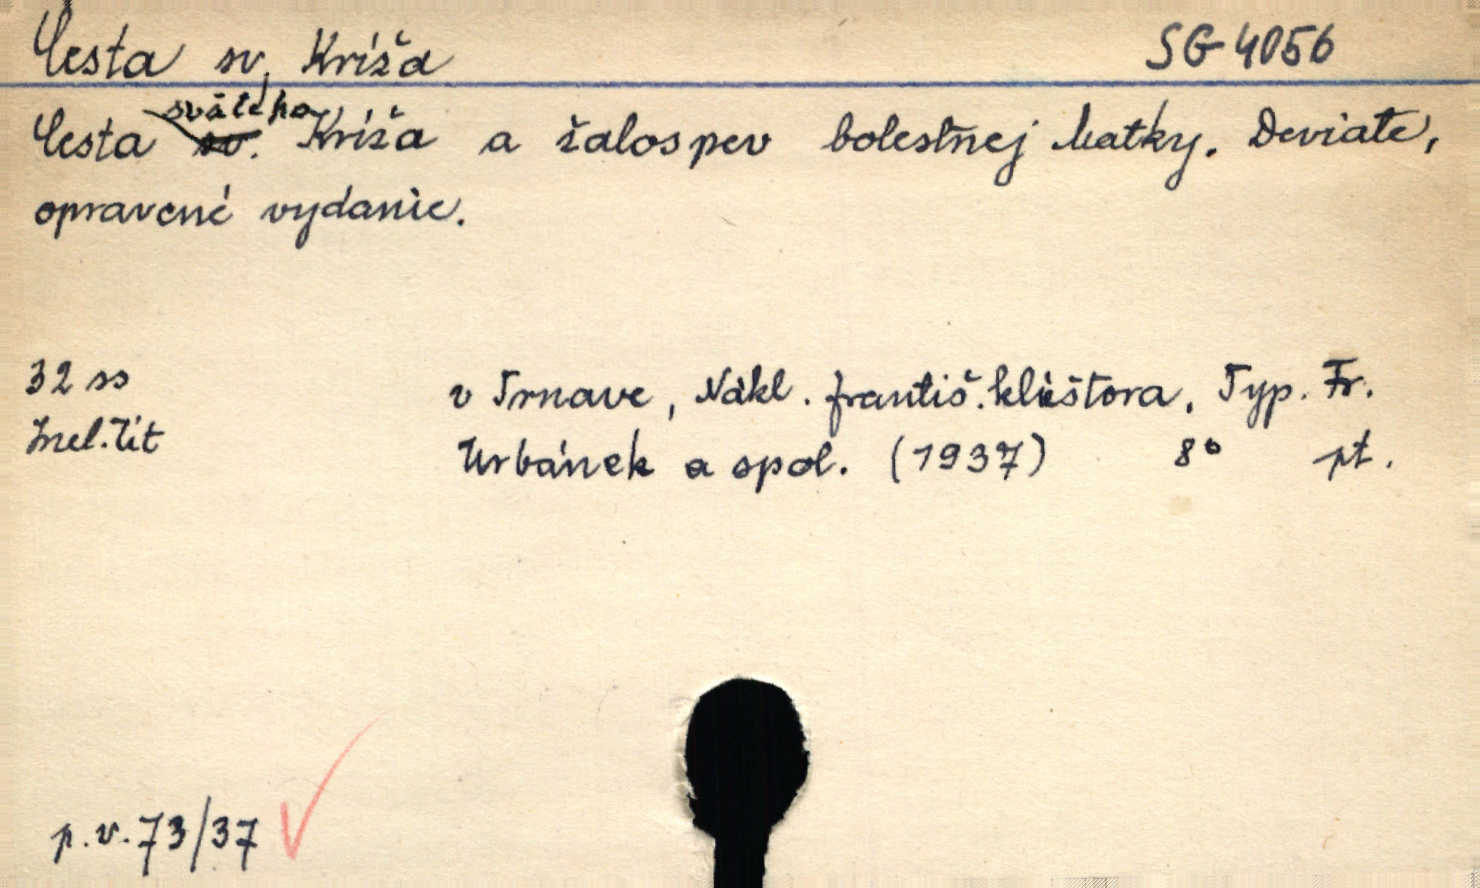 Cesta sv. Kríža SG 4056
Cesta svätého Kríža a žalospev bolestnej Matky. Deviate,
opravené vydanie.
32 ss v Trnave, Nákl. františ. kláštora, Typ. Fr.
Incl. tit Urbánek a spol. (1937) 8° pt.
p.v. 73/37